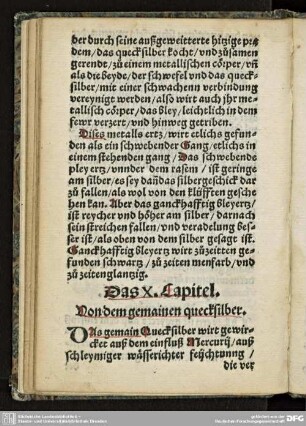 ber durch seine außgeweitterte hitzige pe-
dem/das quecksilber kocht/vnd zůsamen
gerendt/zů einem metallischen cörper/vñ
als die beyde/der schwefel vnd das queck-
silber/mit einer schwachenn verbindung
vereynigt werden/also wirt auch jhr me-
tallisch cörper/das bley/leichtlich in dem
fewr verzert/vnd hinweg getriben.
Dises metalls ertz/wirt etlichs gefun-
den als ein schwebender Gang/etlichs in
einem stehenden gang/Das schwebende
pley ertz/vnnder dem rasem/ist geringe
am silber/es sey dañ das silbergeschick dar
zů fallen/als wol von den klüfften gesche
hen kan. Aber das ganckhafftig bleyertz/
ist reycher vnd höher am silber/darnach
sein streichen fallen/vnd veradelung bes-
ser ist/als oben von dem silber gesagt ist.
Ganckhafftig bleyertz wirt zůzeitten ge-
funden schwartz/zů zeiten menfarb/vnd
zů zeiten glantzig.
Das X. Capitel.
Von dem gemainen quecksilber.
DAs gemain Quecksilber wirt gewir-
cket auß dem einfluß Mercurij/auß
schleymiger wässerichter feüchtunng/
die ver